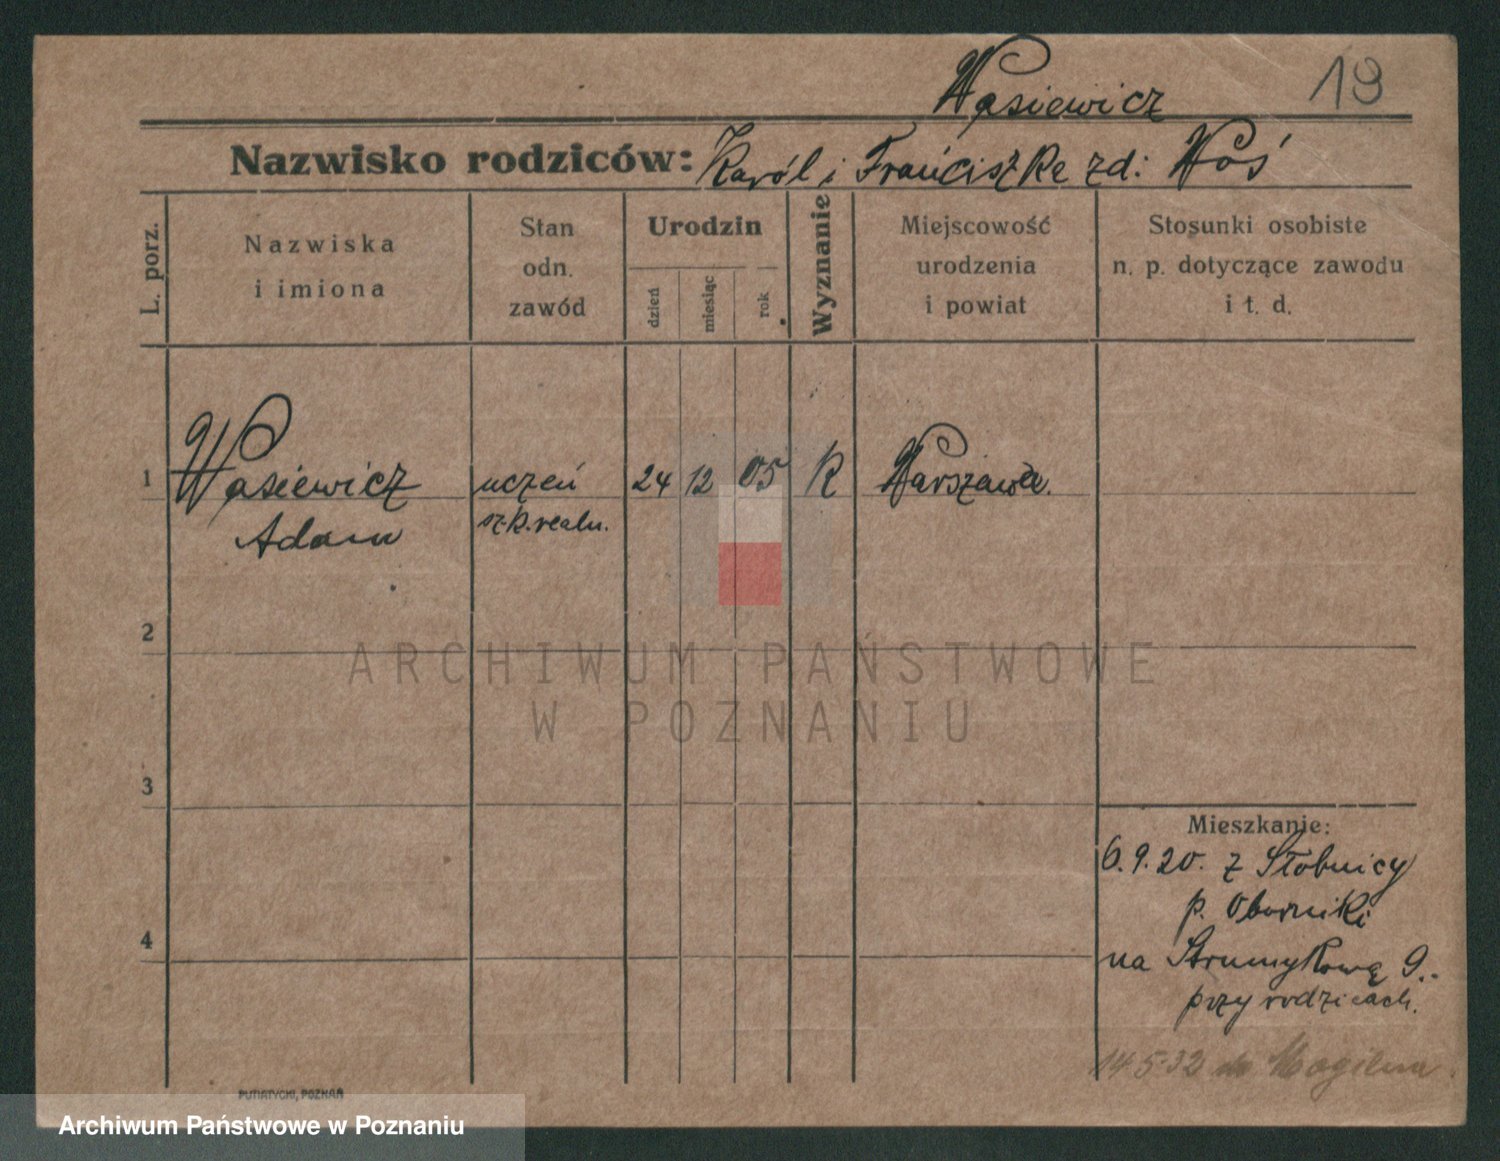 Wąsiewicz 19
Nazwisko rodziców: Karól i Franciszka zd: Woś
L. porz.
Nazwiska
i imiona
Stan
odn.
zawód
Urodzin
dzień
miesiąc
rok
Wyznanie
Miejscowość
urodzenia
i powiat
Stosunki osobiste
n. p. dotyczące zawodu
i t. d.
1 Wąsiewicz uczeń 24 12 05 K Warszawa.
Adam szk. realn.
2
ARCHIWUM PAŃSTWOWE
W POZNANIU
3
Mieszkanie:
6.9.20. z Słobnicy
p. Oborniki
4
na Strumykową 9.-
przy rodzicach.
14.5.32 do Mogilna
PUTIATYCKI, POZNAŃ
Archiwum Państwowe w Poznaniu